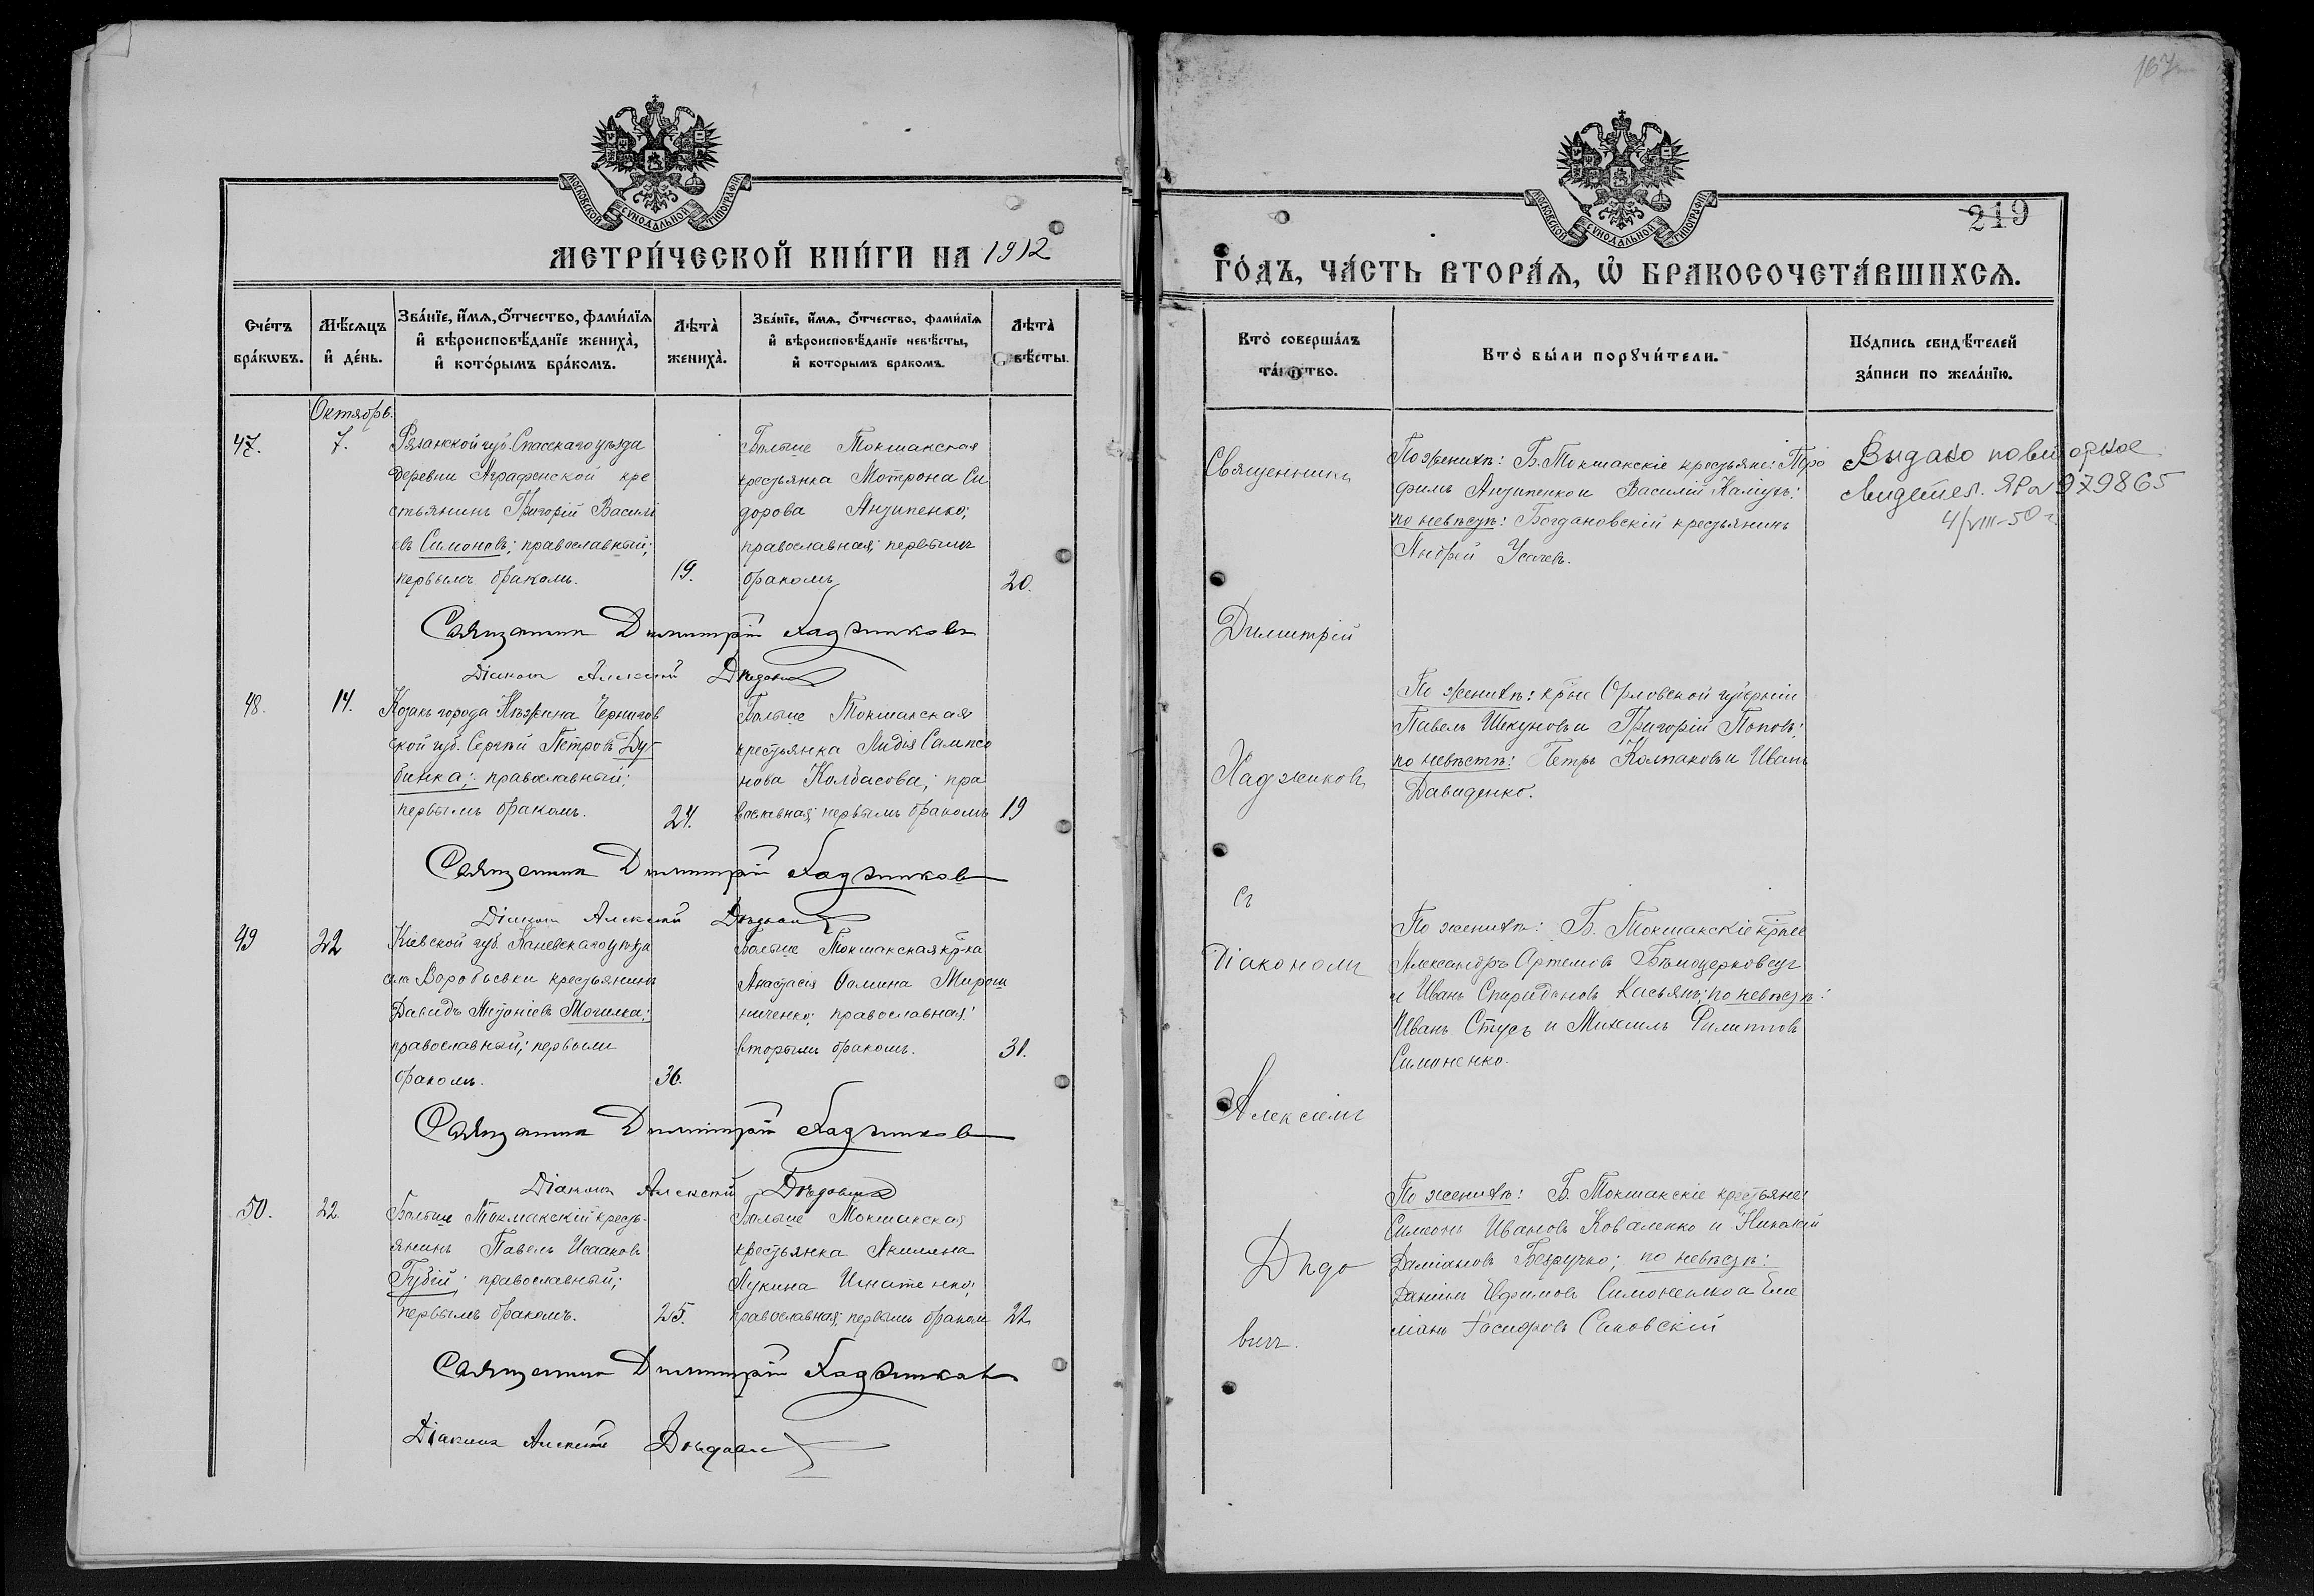 МОСКОВСКОЙ СѴНОДАЛЬНОЙ ТИПОГРАФІИ
МЕТРИ́ЧЕСКОЙ КНИ́ГИ НА 1912
Сче́тъ бра́кωвъ.
Мѣ́сѧцъ и҆ де́нь.
Зва́нїе, и҆́мѧ, ѻ҆́тчество, фами́лїѧ
и҆ вѣроисповѣ́данїе жениха̀,
и҆ кото́рымъ бра́комъ.
Лѣта̀ жениха̀.
Зва́нїе, и҆́мѧ, ѻ҆́тчество, фами́лїѧ
и҆ вѣроисповѣ́данїе невѣ́сты,
и҆ которымъ бракомъ.
Лѣта̀
вѣ́сты.
Октябрь.
47.
7.
Рязанской губ. Спасскаго уѣзда
деревни Аграфенской кре
стьянинъ Григорій Василі
въ Симоновъ; православный;
первымъ бракомъ.
19.
Больше Токмакская
крестьянка Мотрона Си
дорова Антипенко;
православная; первымъ
бракомъ
20.
Священникъ Димитрій Хаджиновъ
Діаконъ Алексѣй Дѣдовичъ
48.
14.
Козакъ города Нѣжина Чернигов
ской губ. Сергѣй Петровъ Ду-
бинка; православный;
первымъ бракомъ.
24.
Больше Токмакская
крестьянка Лидія Сампсо
нова Колбасова; пра
вославная; первымъ бракомъ
19
Священникъ Димитрій Хаджиновъ
Діаконъ Алексѣй Дѣдовичъ
49
22
Кіевской губ. Каневскаго уѣзда
села Воробьевки крестьянинъ
Давидъ Могилка;
православный; первымъ
бракомъ.
36.
Больше Токмакская кр-ка
Анастасія Ѳомина Мирош
ниченко; православная;
вторымъ бракомъ.
31.
Священникъ Димитрій Хаджиновъ
Діаконъ Алексѣй Дѣдовичъ
50.
22
Больше Токмакскій кресть-
янинъ Павелъ Исааковъ
Губій; православный;
первымъ бракомъ.
25.
Больше Токмакская
крестьянка Акилина
Лукина Игнатенко;
православная; первымъ бракомъ
22
Священникъ Димитрій Хаджиновъ
Діаконъ Алексѣй Дѣдовичъ
167
219
МОСКОВСКОЙ СѴНОДАЛЬНОЙ ТИПОГРАФІИ
ГО́ДЪ, ЧА́СТЬ ВТОРА́Ѧ, Ѡ҆ БРАКОСОЧЕТА́ВШИХСѦ.
Кто̀ соверша́лъ
та́инство.
Кто̀ бы́ли порꙋчи́тели.
По́дпись свидѣ́телей
за́писи по жела́нїю.
Священникъ
Димитрій
Хаджиновъ
съ
Діакономъ
Алексіемъ
Дѣдо
вичъ.
По женихѣ: Б. Токмакскіе крестьяне: Тро
фимъ Антипенко и Василій
по невѣстѣ: Богдановскій крестьянинъ
Андрей Усачевъ.
Выдано повторное
Свидетел. ЯР № 979865
4/VIII-50 г.
По женихѣ: кр-не Орловской губерніи
Павелъ Шекуновъ и Григорій Поповъ;
по невѣстѣ: Петръ Колпаковъ и Иванъ
Давиденко.
По женихѣ: Б. Токмакскіе кр-не
Александръ Артемовъ Бѣлоцерковецъ
и Иванъ Спиридоновъ Касьянъ; по невѣстѣ:
Иванъ Стусъ и Михаилъ Филипповъ
Симоненко.
По женихѣ: Б. Токмакскіе крестьяне:
Симеонъ Ивановъ Коваленко и Николай
Даміановъ Безручко; по невѣстѣ:
Даніилъ Ефимовъ Симоненко и Еме
ліанъ Саковскій